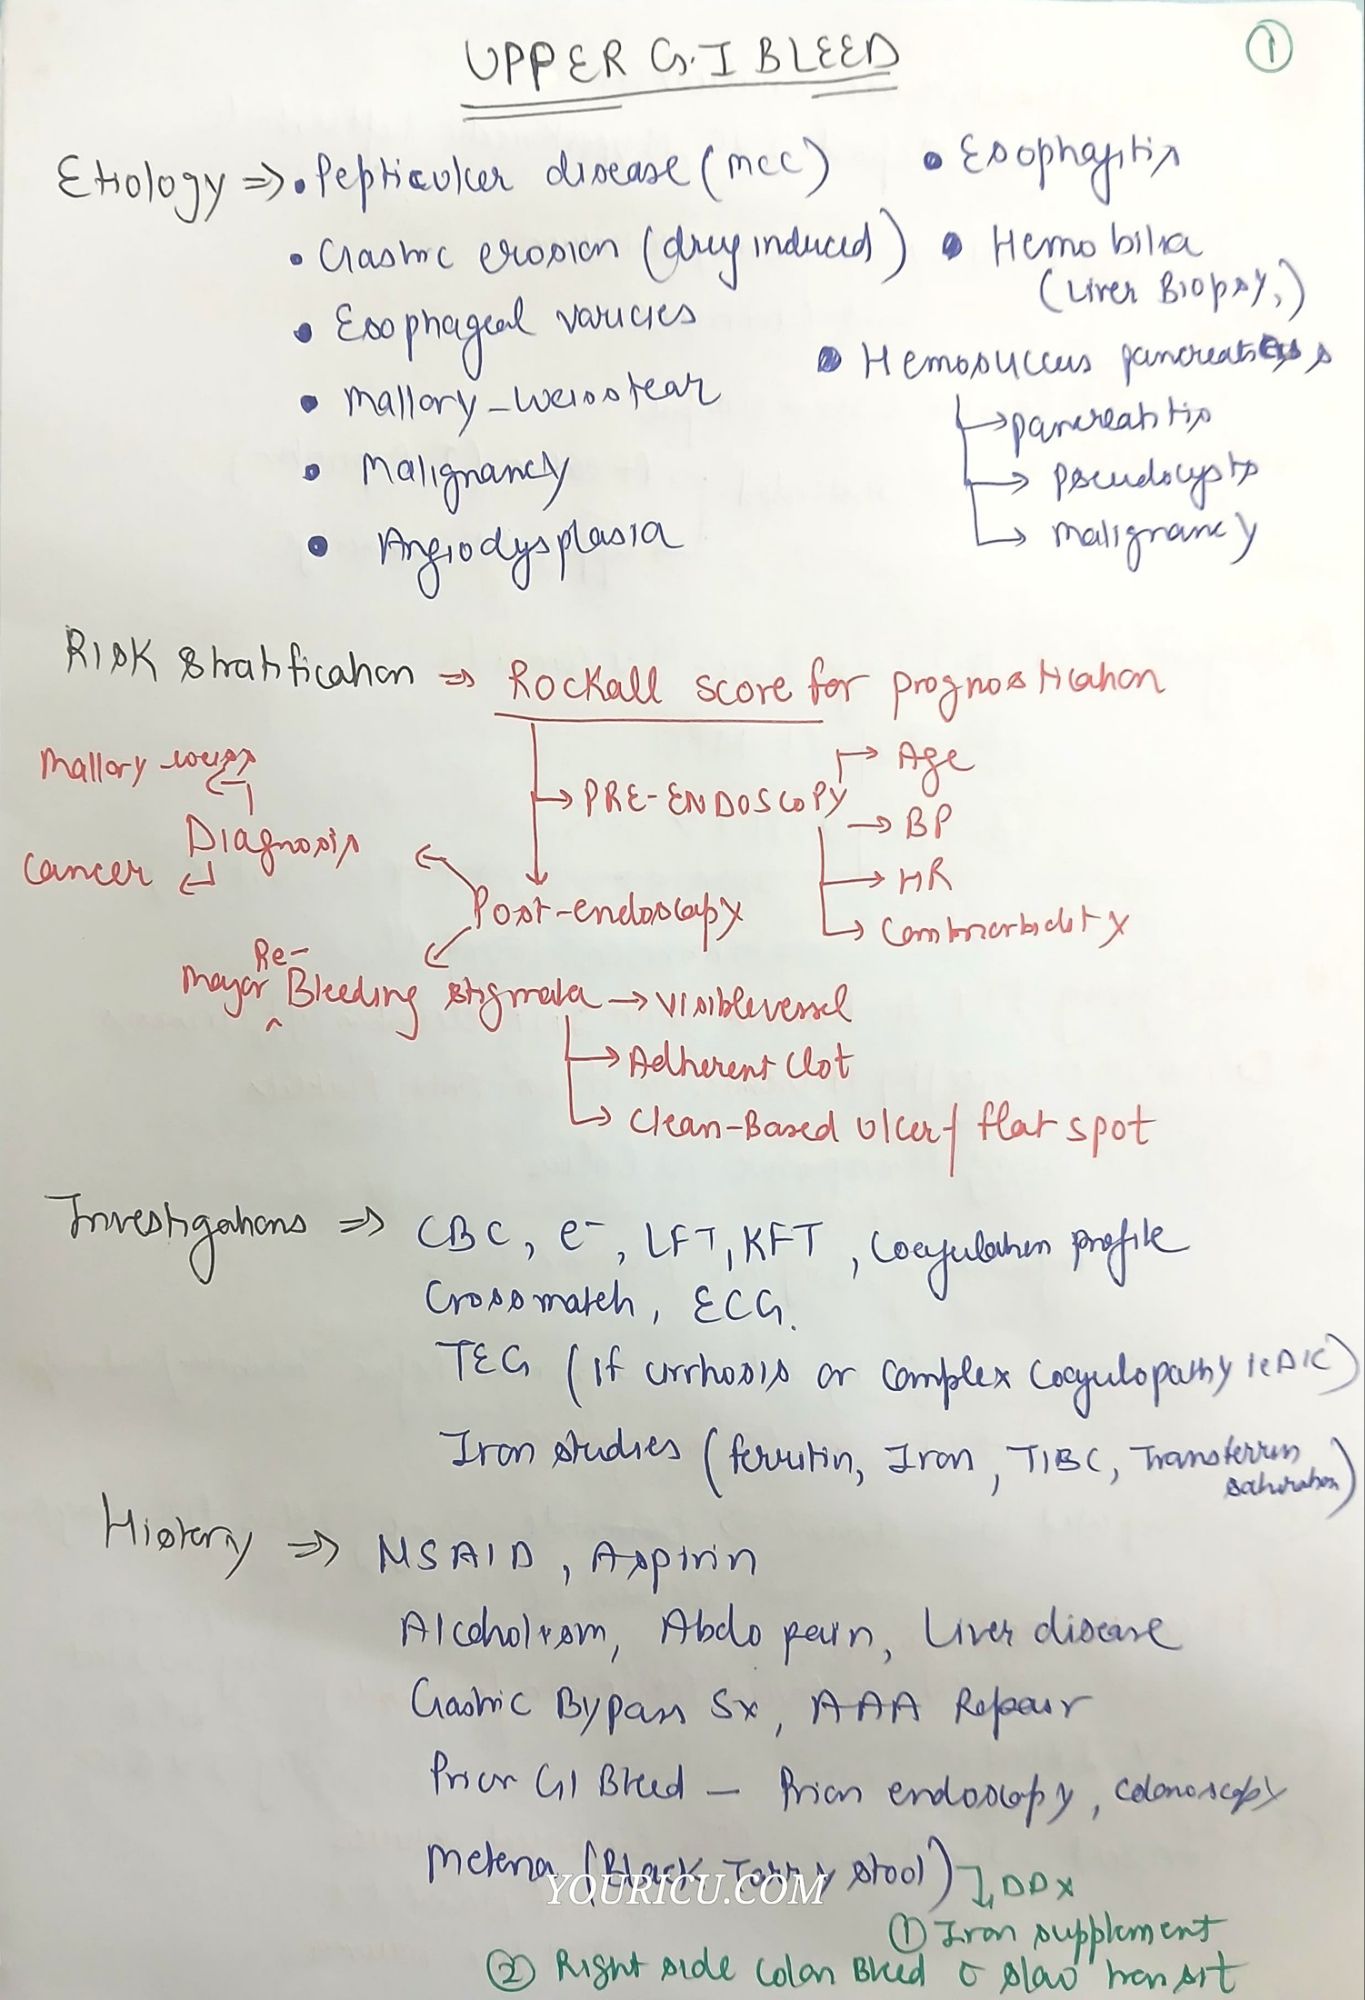 UPPER G.I BLEED
1
Etiology ⇒ • Pepticulcer disease (mcc)
• Gastric erosion (drug induced)
• Esophageal varicies
• Mallory-weisstear
• Malignancy
• Angiodysplasia
• Esophagitis
• Hemobilia
(Liver Biopsy,)
• Hemosuccus pancreaticus
→ pancreatitis
→ pseudocysts
→ malignancy
Risk stratification ⇒ Rockall score for prognostication
→ PRE-ENDOSCOPY
→ Age
→ BP
→ HR
→ Combmorbidity
Post-endoscopy
Diagnosis
Mallory weiss
cancer
Major Re-Bleeding stigmata → visible vessel
→ Adherent clot
→ Clean-Based ulcer / flat spot
Investigations ⇒ CBC, e⁻, LFT, KFT, Coagulation profile
Crossmatch, ECG.
TEG (if cirrhosis or complex coagulopathy ie DIC)
Iron studies (ferritin, Iron, TIBC, Transferrin saturation)
History ⇒ NSAID, Aspirin
Alcoholism, Abdo pain, Liver disease
Gastric Bypass Sx, AAA Repair
Prior GI Bleed – Prior endoscopy, colonoscopy
Melena (Black Tarry stool) → DDx
① Iron supplement
② Right side colon Bleed c slow transit
YOURICU.COM